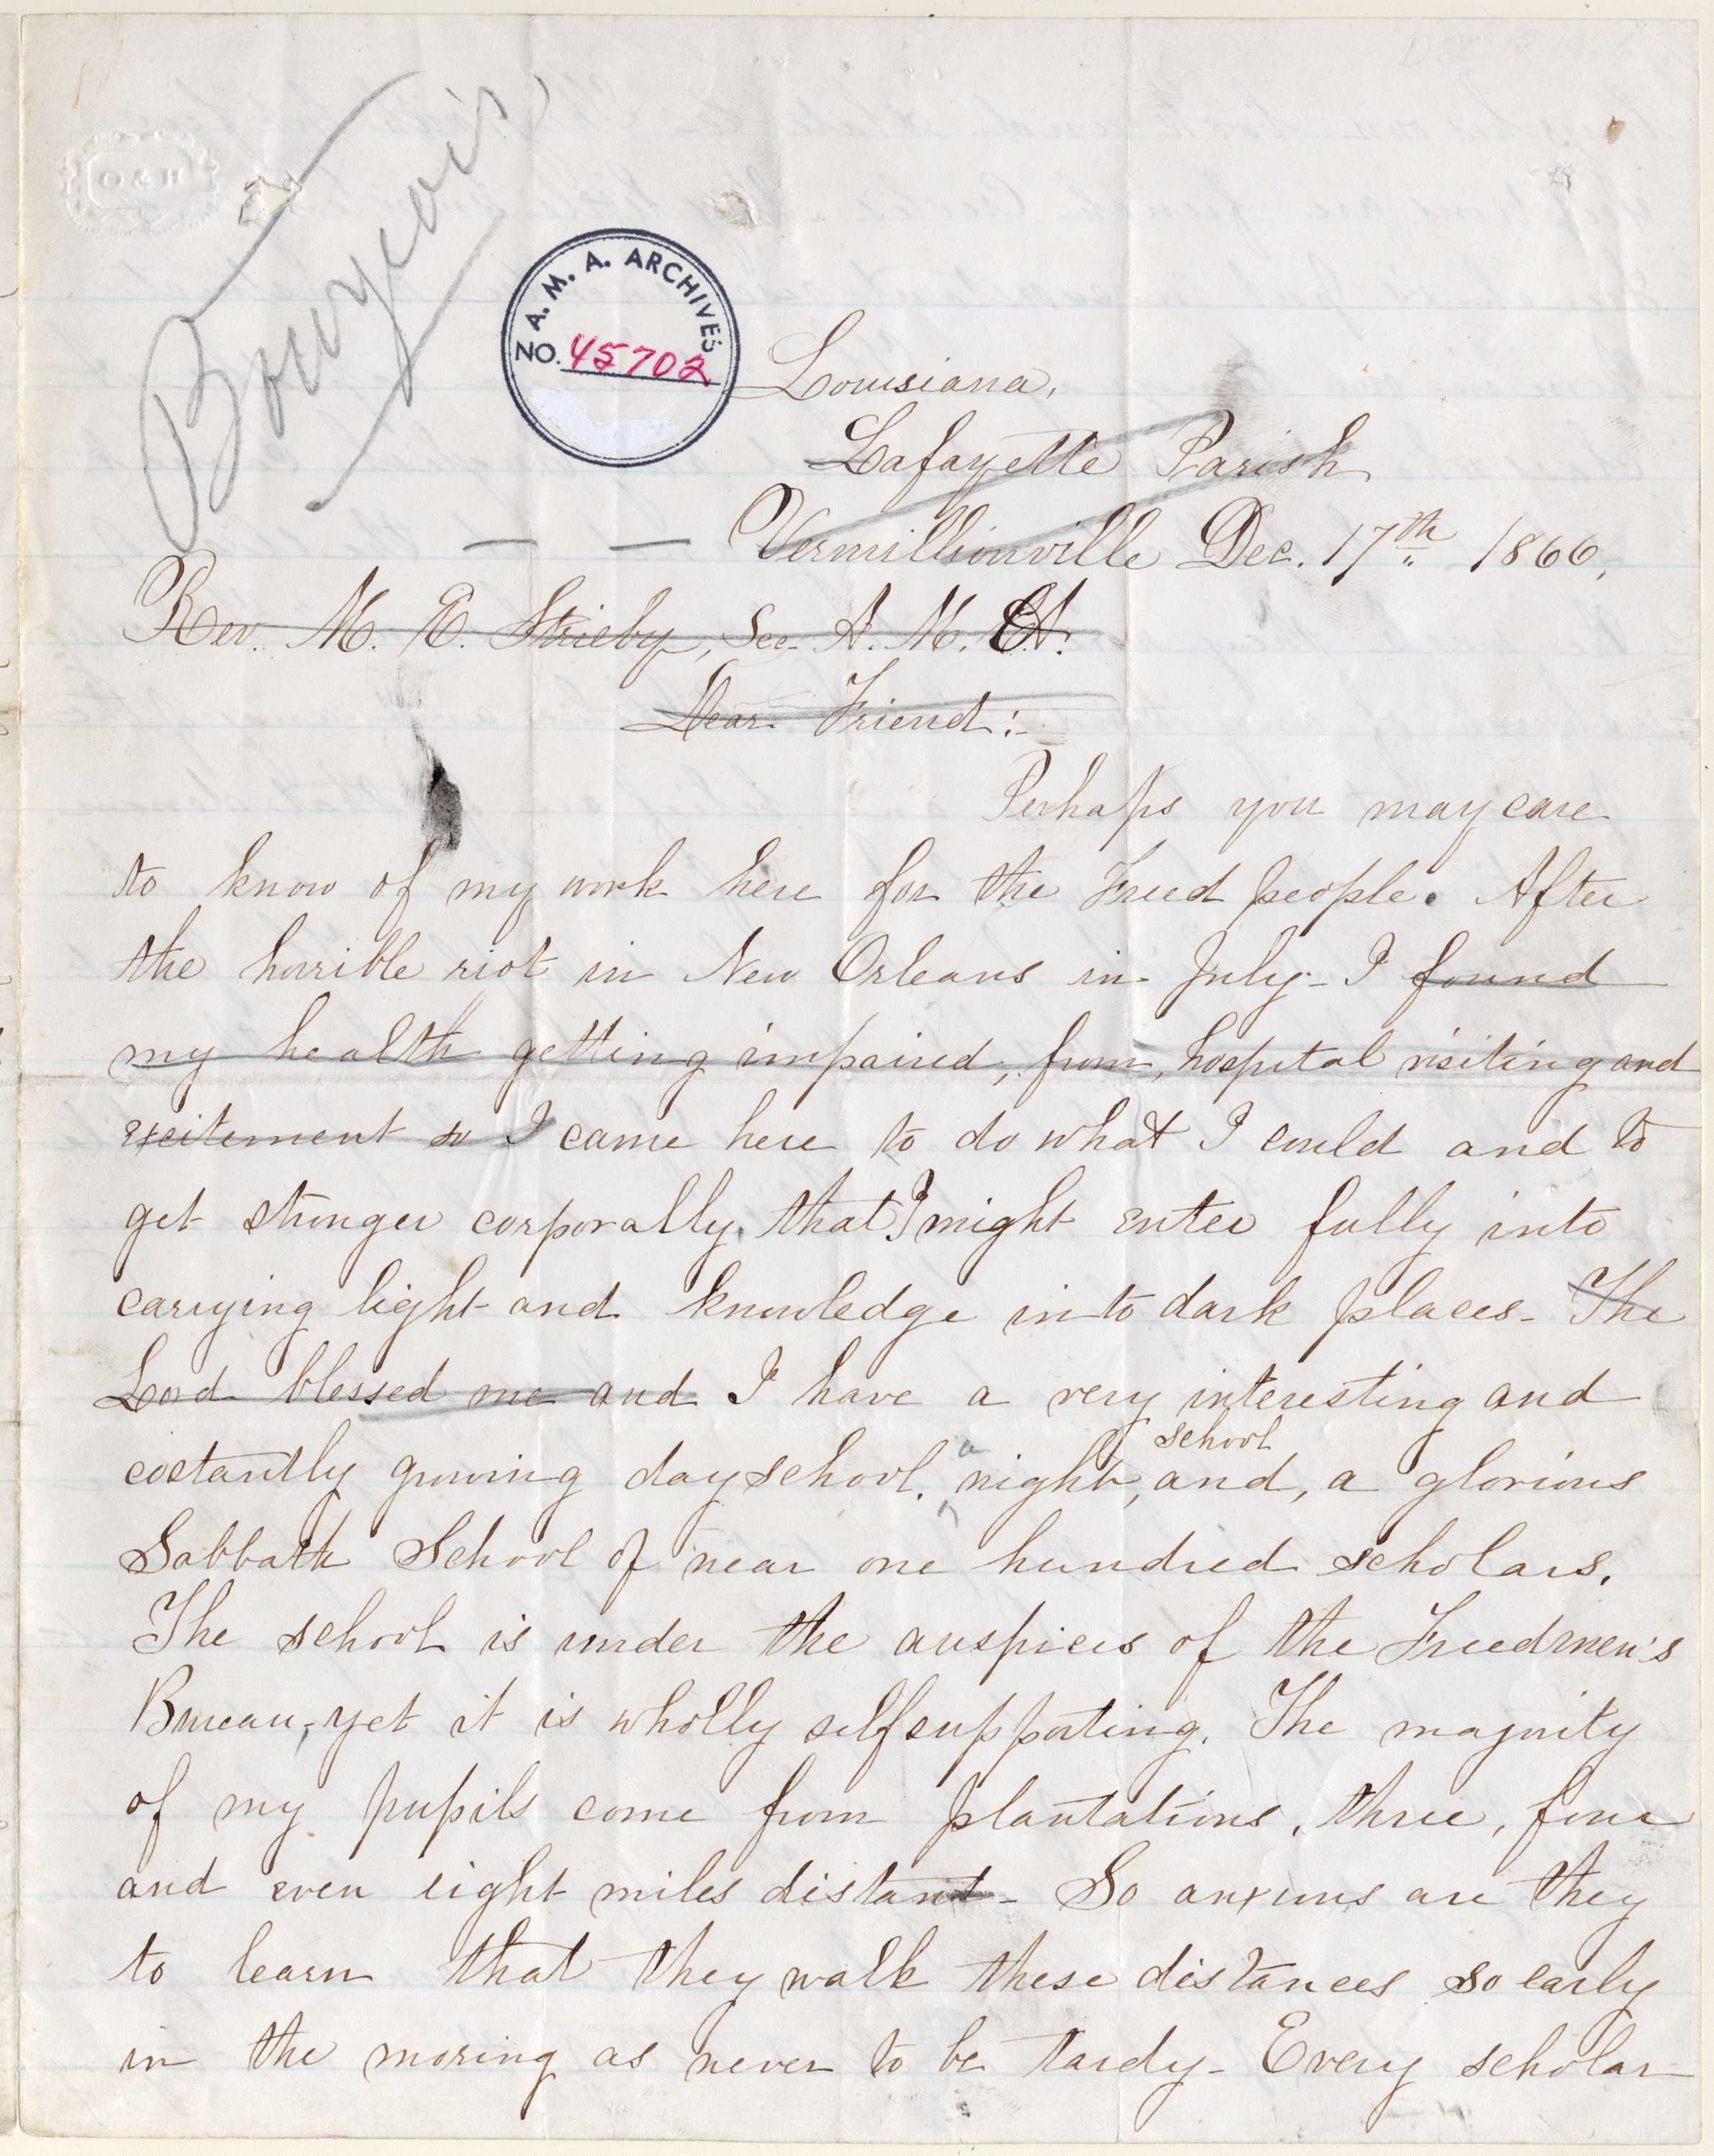 O & H
Bourgeois
A. M. A. ARCHIVES
NO. 45702
Louisiana,
Lafayette Parish
Vermillionville Dec. 17th 1866,
Rev. M. E. Strieby, Sec. A. M. A.
Dear Friend:-
Perhaps you may care
to know of my work here for the Freed people. After
the horrible riot in New Orleans in July- I found
my health getting impaired, from, hospital visiting and
excitement so I came here to do what I could and to
get stronger corporally. that I might enter fully into
carrying light and knowledge into dark places- The
Lord blessed me and I have a very interesting and
costantly growing day school, a night, school and, a glorious
Sabbath School of near one hundred scholars.
The school is under the auspices of the Freedmen's
Bureau, yet it is wholly self supporting. The majority
of my pupils come from plantations, three, four
and even eight miles distant- So anxious are they
to learn that they walk these distances so early
in the moring as never to be tardy- Every scholar